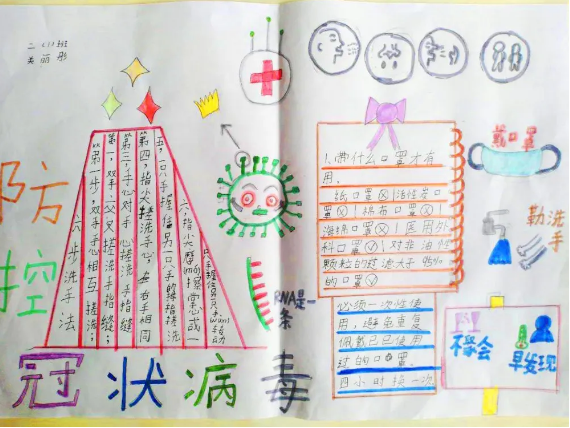 二(1)班
关丽彤
防
控
六步洗手法
第一步,双手手心相互搓洗;
第二,双手交叉搓洗手指缝;
第三,手心对手心搓洗手指缝
第四,指尖搓洗手心,左右手相同
五,一只手握住另一只手的拇指搓洗
六,指尖摩擦掌心或一
只手握住另一只手
转动
RNA是一
条
冠状病毒
1.带什么口罩才有
用。
纸口罩ⓧ|活性炭口
罩ⓧ|棉布口罩ⓧ|
海绵口罩ⓧ|医用外
科口罩ⓥ|对非油性
颗粒的过滤大于95%
的口罩ⓥ
必须一次性使
用,避免重复
佩戴已已使用
过的口罩。
四小时换一次
戴口罩
勤洗手
不聚会
早发现